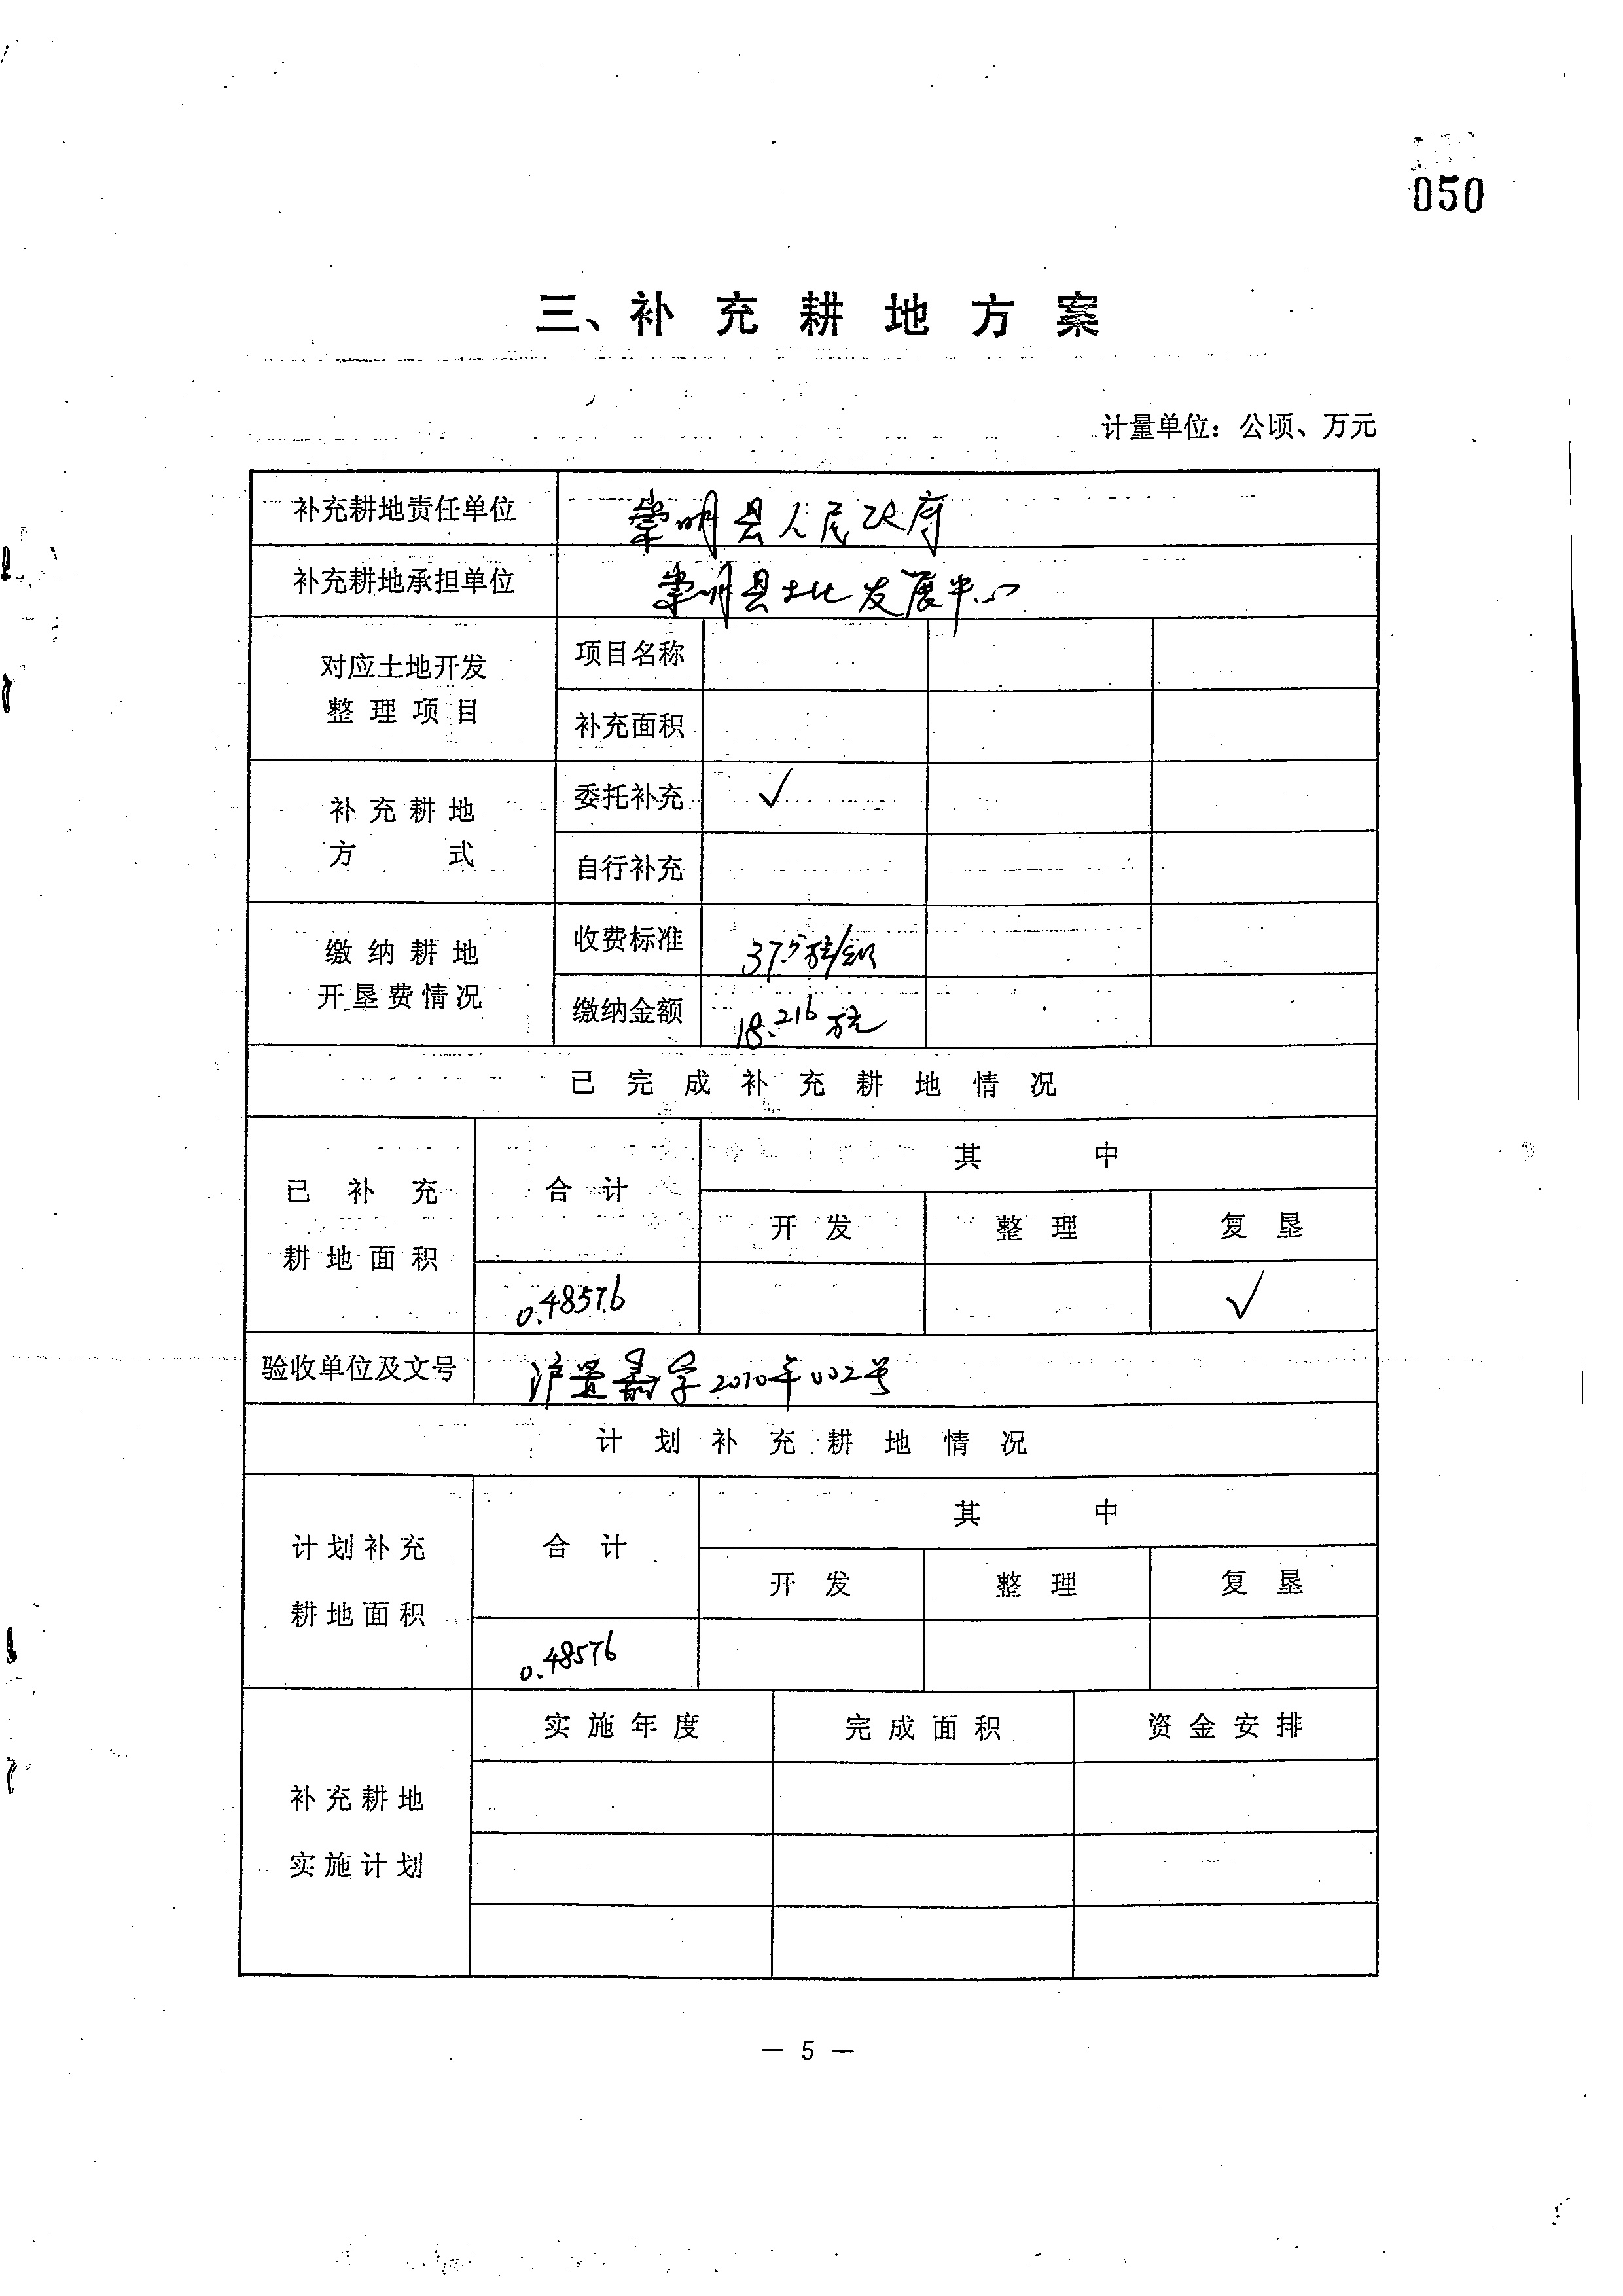 050
三、补充耕地方案
计量单位：公顷、万元
补充耕地责任单位 崇明县人民政府
补充耕地承担单位 崇明县土地发展中心
对应土地开发
整理项目
项目名称
补充面积
补充耕地
方式
委托补充 √
自行补充
缴纳耕地
开垦费情况
收费标准 37.5万元/公顷
缴纳金额 18.216万元
已完成补充耕地情况
已补充
耕地面积
合计
其中
开发 整理 复垦
0.48576 √
验收单位及文号 沪置嘉字2010年002号
计划补充耕地情况
计划补充
耕地面积
合计
其中
开发 整理 复垦
0.48576
补充耕地
实施计划
实施年度 完成面积 资金安排
— 5 —